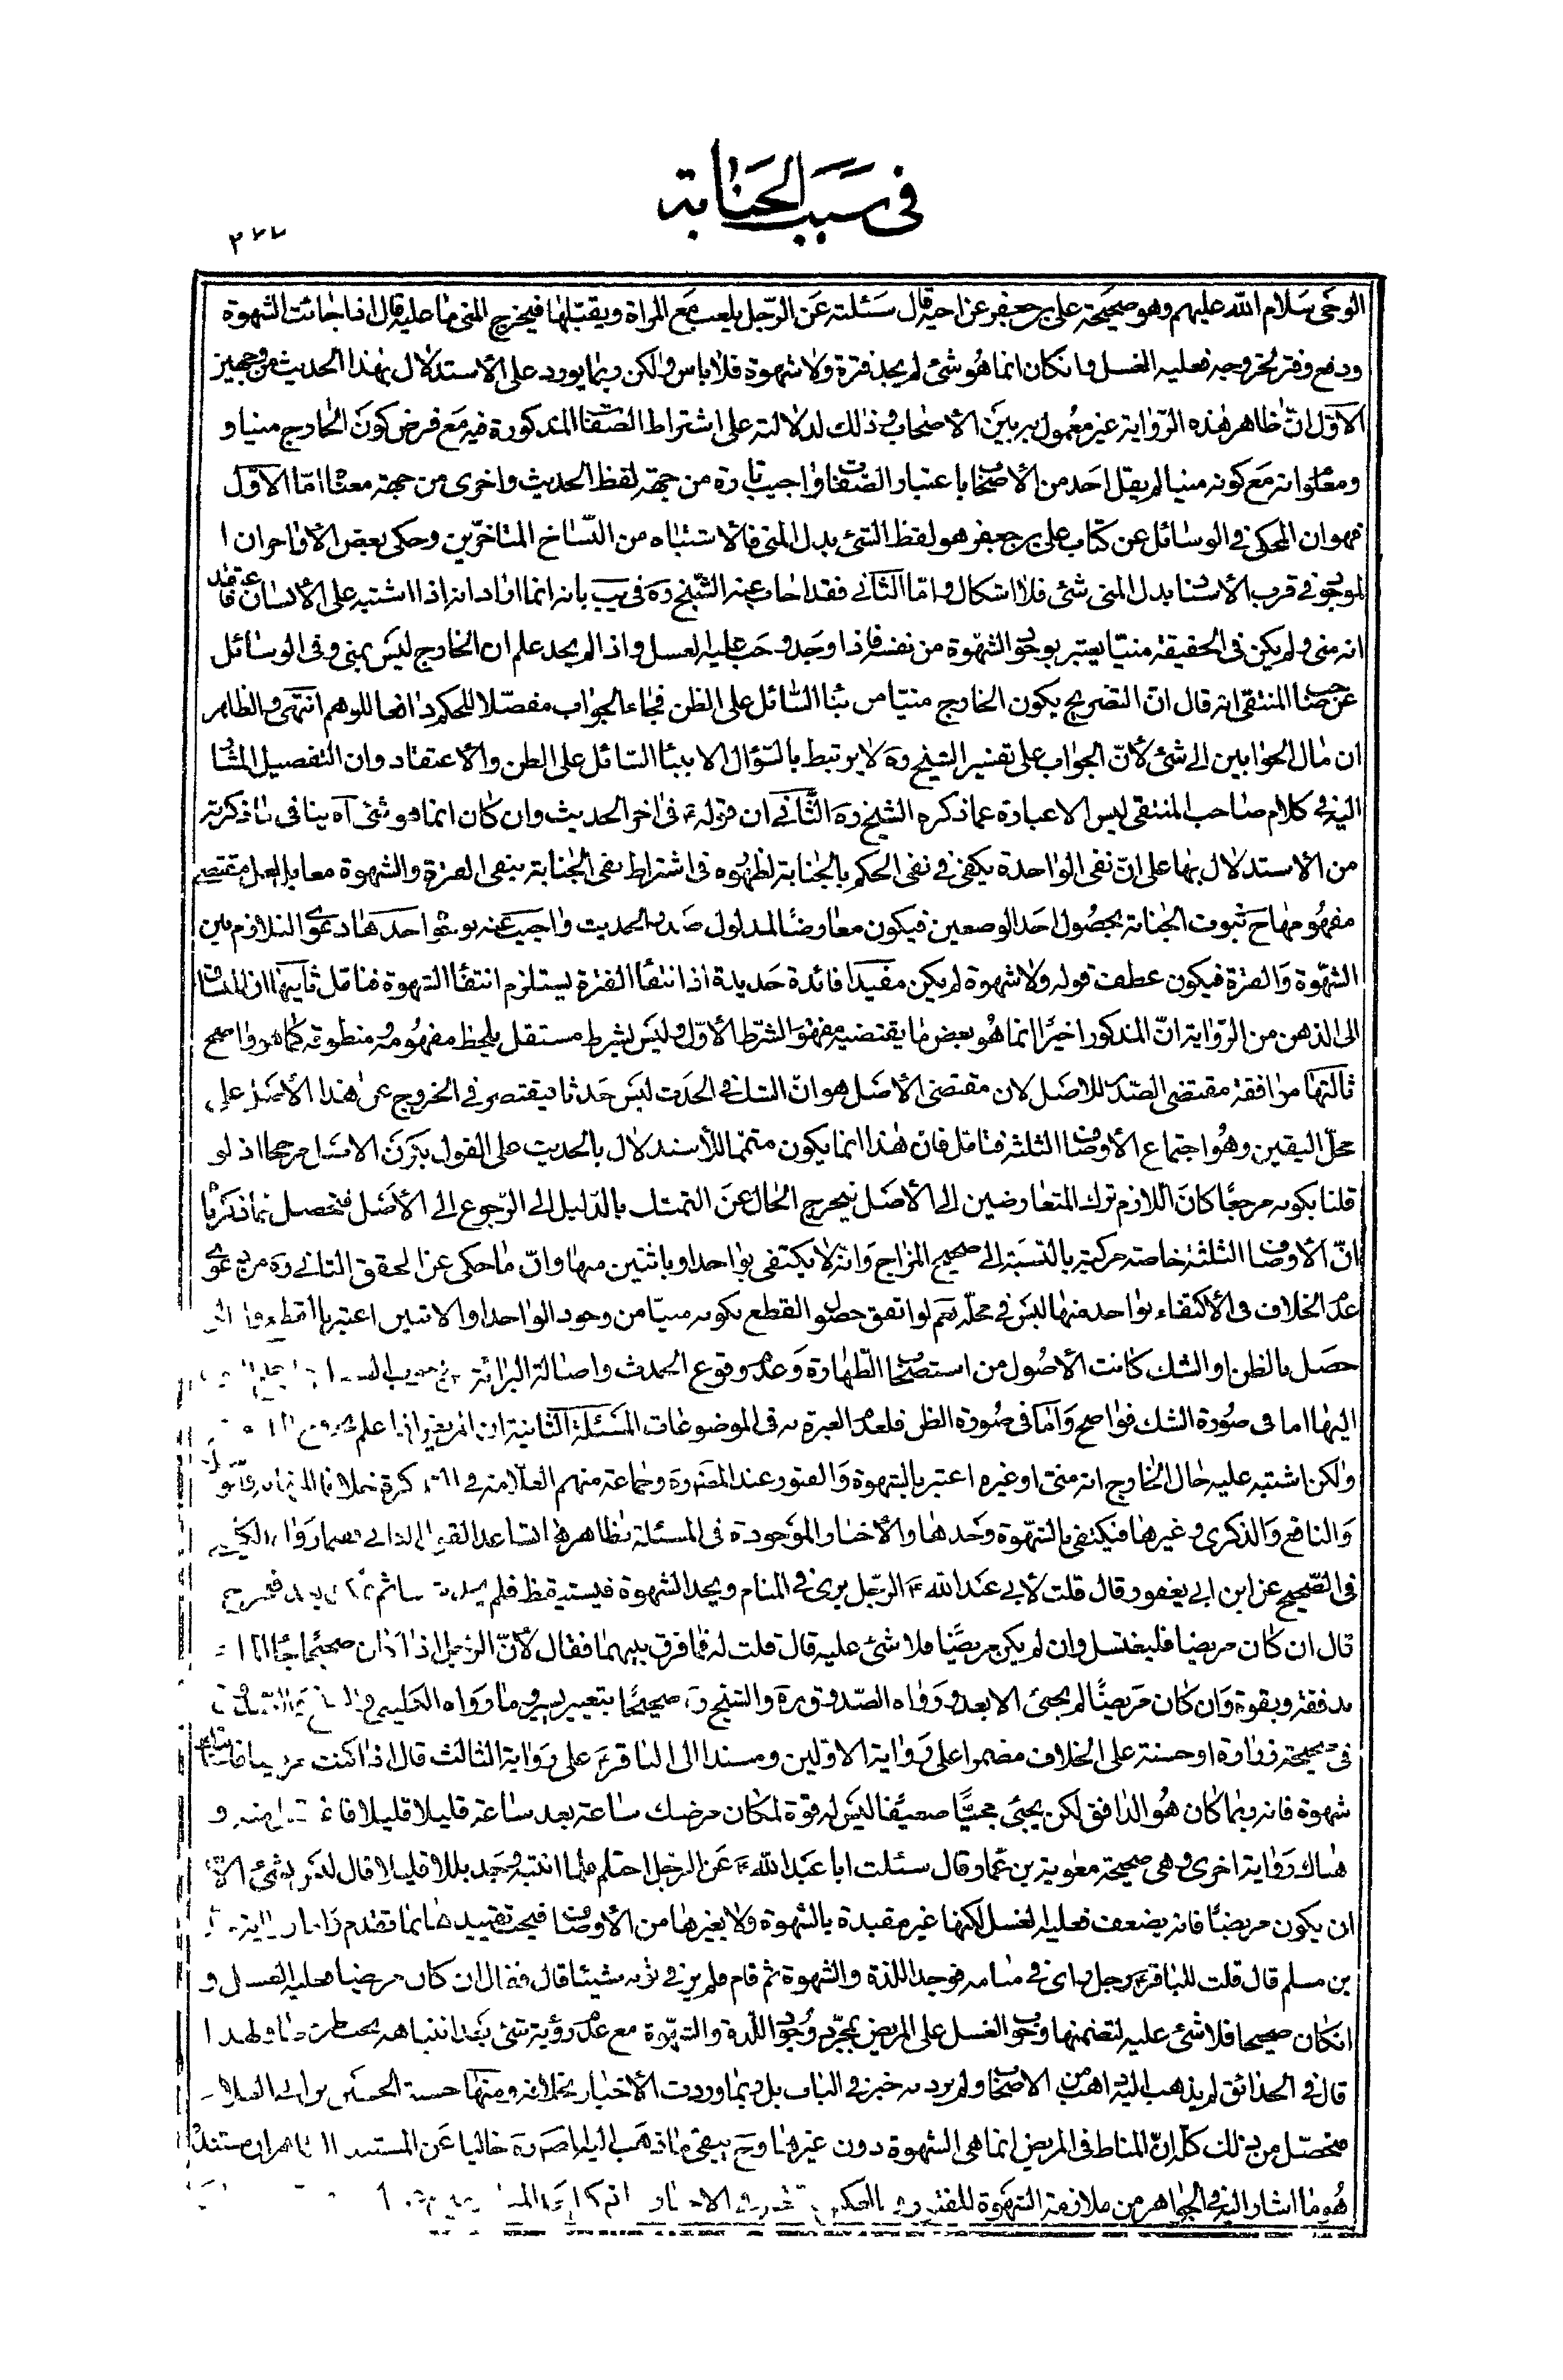 في سبب الجنابة
٢٧٧
الوحى سلام الله عليهم وهو صحيحة على بن جعفر عن اخيه قال سئلته عن الرّجل يلعب مع المراة ويقبّلها فيخرج المنى ما عليه قال اذا جائت الشهوة
ودفع وفتر بخروجه فعليه الغسل وان كان انما هو شئ لم يجد فترة ولا شهوة فلا باس ولكن ربما يورد على الاستدلال بهذا الحديث من وجهين
الاوّل انّ ظاهر هذه الرّواية غير معمول به بين الأصحاب وذلك لدلالته على اشتراط الصّفات المذكورة فيه مع فرض كون الخارج منيا و
ومعلوم انه مع كونه منيا لم يقل احد من الأصحاب باعتبار الصّفات واجيب تارة من جهة لفظ الحديث واخرى من جهة معناه امّا الاوّل
فهو ان المحكى في الوسائل عن كتاب على بن جعفر هو لفظ الشئ بدل المنى فالاشتباه من النّساخ المتاخّرين وحكى بعض الأواخر ان ا
لموجود في قرب الأسناد بدل المنى شئ فلا اشكال وامّا الثّاني فقد اجاب عنه الشّيخ ره في يب بانه انما اراد انه اذا اشتبه على الأنسان فاعتقد
انه منى ولم يكن في الحقيقة منيّا يعتبر بوجود الشّهوة من نفسه فاذا وجد وجب عليه الغسل واذا لم يجد علم ان الخارج ليس بمنى وفي الوسائل
عن صاحب المنتقى انه قال انّ التصريح بكون الخارج منيّا من بناء السّائل على الظن فجاء الجواب مفصّلا للحكم دافعا للوهم انتهى والظاهر
ان مال الجوابين الى شئ لأنّ الجواب على تفسير الشيخ ره لا يرتبط بالسّؤال الا ببناء السّائل على الظن والاعتقاد وان التفصيل المشار
اليه في كلام صاحب المنتقى ليس الا عبارة عما ذكره الشيخ ره الثّاني ان قوله ع في اخر الحديث وان كان انما هو شئ آه ينافي ما ذكرته
من الاستدلال بها على انّ نفى الواحدة يكفى في نفى الحكم بالجنابة لظهوره في اشتراط نفى الجنابة بنفى الفترة والشهوة معا
مفهومها ح ثبوت الجنابة بحصول احد الوصفين فيكون معارضا لمدلول صدر الحديث واجيب عنه بوجوه احدها دعوى التلازم بين
الشّهوة والفترة فيكون عطف قوله ولا شهوة لم يكن مفيدا فائدة جديدة اذ انتفاء الفترة يستلزم انتفاء الشهوة فتامّل ثانيها ان المنساق
الى الذهن من الرّواية انّ المذكور اخيرا انما هو بعض ما يقتضيه مفهوم الشرط الأوّل وليس بشرط مستقل يلحظ مفهومه ومنطوقه كما هو واضح
ثالثها موافقة مقتضى الصّدر للاصل لان مقتضى الأصل هو انّ الشك في الحدث ليس حدثا فيقتصر في الخروج عن هذا الأصل على
محلّ اليقين وهو اجتماع الأوصاف الثلثة فتامّل فان هذا انما يكون متمّما للأستدلال بالحديث على القول بكون الاصل مرجحا اذ لو
قلنا بكونه مرجعا كان اللازم ترك المتعارضين الى الأصل فيخرج الحال عن التمسّك بالدّليل الى الرّجوع الى الأصل فتحصل مما ذكرنا
انّ الأوصاف الثلثة خاصة مركبة بالنّسبة الى صحيح المزاج وانّه لا يكتفى بواحد او باثنين منها وانّ ما حكى عن المحقق الثاني ره من دعوى
عدم الخلاف في الأكتفاء بواحد منها ليس في محلّه نعم لو اتفق حصول القطع بكونه منيّا من وجود الواحد او الاثنين اعتبر
حصل بالظن او الشك كانت الأصول من استصحاب الطّهارة وعدم وقوع الحدث واصالة البرائة
اليها اما في صورة الشك فواضح وامّا في صورة الظن فلعدم العبرة به في الموضوعات المسئلة الثّانية ان المريض اذا علم
ولكن اشتبه عليه حال الخارج انه منى او غيره اعتبر بالشهوة والفتور عند المصنّف ره وجماعة منهم العلّامة في
والنافع والذكرى وغيرها فيكتفى بالشّهوة وحدها والأخبار الموجودة في المسئلة بظاهرها تساعد
في الصّحيح عن ابن ابى يعفور قال قلت لأبى عبد الله ع الرّجل يرى في المنام ويجد الشهوة فيستيقظ فلم
قال ان كان مريضا فليغتسل وان لم يكن مريضا فلا شئ عليه قال قلت له فما فرق بينهما فقال لأنّ الرّجل اذا كان صحيحا جاء
بدفقة وبقوة وان كان مريضا لم يجئ الا بعد ورواه الصّدوق ره والشيخ ره صحيحا بتغيير يسير وما رواه الكلينى
في صحيحة زرارة او حسنة على الخلاف مضمرا على رواية الاوّلين ومسندا الى الباقر ع على رواية الثالث قال اذا كنت مريضا فاصابتك
شهوة فانه ربما كان هو الدافق لكن يجئ مجيئا ضعيفا ليس له قوة لمكان مرضك ساعة بعد ساعة قليلا قليلا
هناك رواية اخرى وهى صحيحة معوية بن عمار قال سئلت ابا عبد الله ع عن الرجل احتلم فلما انتبه وجد بللا قليلا قال ليس بشئ الا
ان يكون مريضا فانه يضعف فعليه الغسل لكنها غير مقيدة بالشهوة ولا بغيرها من الأوصاف فيجب تقييدها بما تقدم
بن مسلم قال قلت للباقر ع رجل راى في منامه فوجد اللذة والشهوة ثم قام فلم ير في ثوبه شيئا قال فقال ان كان مريضا فعليه الغسل و
ان كان صحيحا فلا شئ عليه لتضمنها وجوب الغسل على المريض بمجرّد وجود اللّذة والشهوة مع عدم رؤية شئ بعد انتباهه
قال في الحدائق لم يذهب اليه ذاهب من الاصحاب ولم يرد به خبر في الباب بل ربما وردت الأخبار بخلافه ومنها حسنة الحسين بن ابى العلاء
فتحصّل من ذلك كلّه انّ المناط في المريض انما هى الشهوة دون غيرها وح يبقى ما ذهب اليه المصنف ره خاليا عن المستند
هو ما اشار اليه في الجواهر من ملازمة الشهوة للفتور